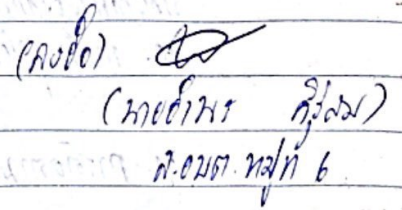 (ลงชื่อ)
(นายอำพร ศิริสม)
ส.อบต.หมู่ที่ 6